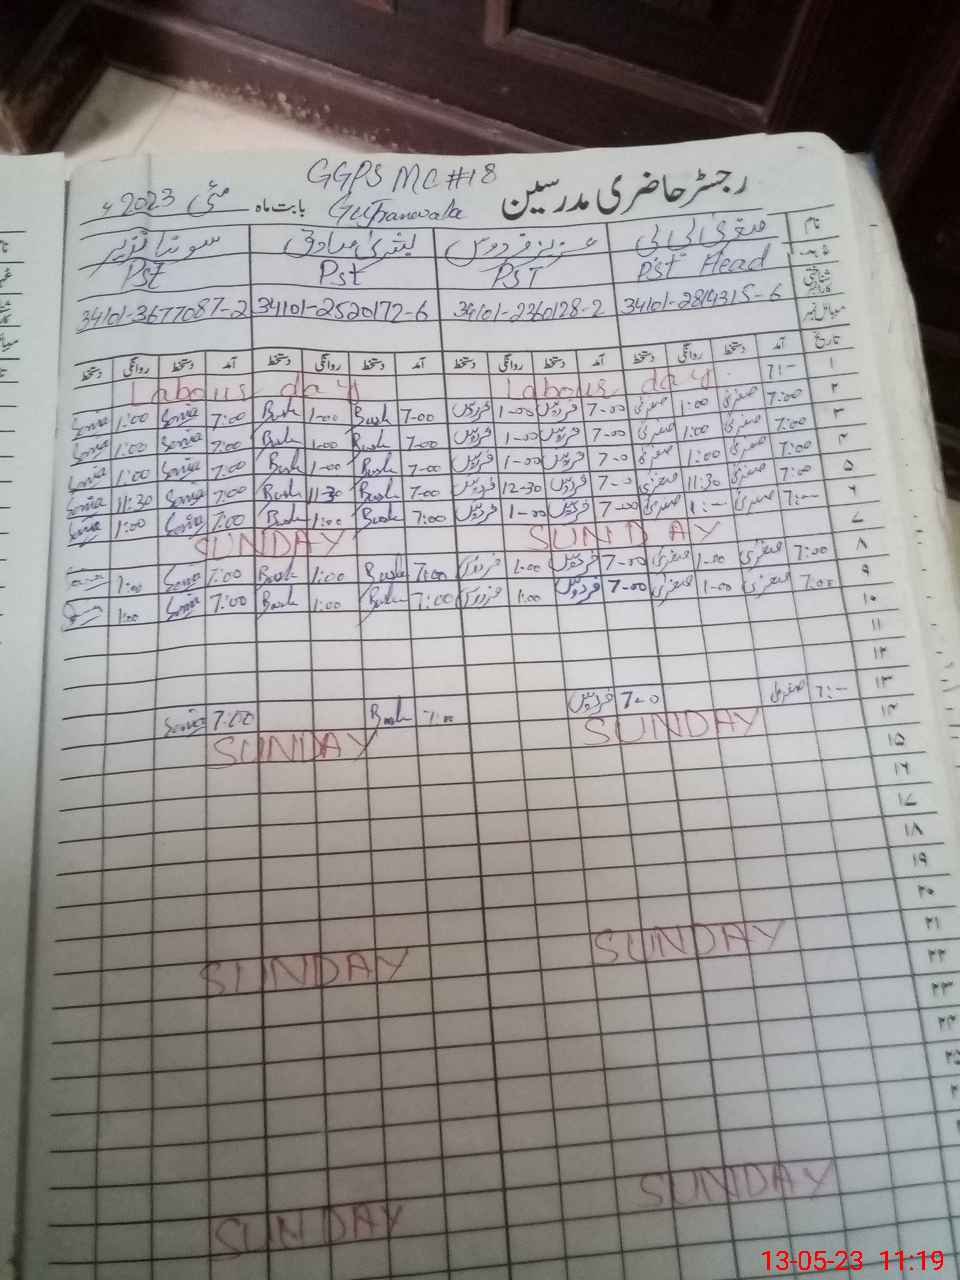 GGPS MC #18
رجسٹر حاضری مدرسین Gujranwala بابت ماہ مئی 2023ء
نام صغریٰ بی بی عزیز فردوس بشریٰ صادق سونیا نذیر
عہدہ PST Head PST Pst Pst
شناختی کارڈ نمبر 34101-2814315-6 34101-2360128-2 34101-2520172-6 34101-3677087-2
موبائل نمبر
تاریخ آمد دستخط روانگی دستخط آمد دستخط روانگی دستخط آمد دستخط روانگی دستخط آمد دستخط روانگی دستخط
۱ Labour day Labour day
۲ 7:00 صغریٰ 1:00 صغریٰ 7-00 فردوس 1-00 فردوس 7-00 Bush 1-00 Bush 7:00 Sonia 1:00 Sonia
۳ 7:00 صغریٰ 1:00 صغریٰ 7-00 فردوس 1-00 فردوس 7-00 Bush 1-00 Bush 7:00 Sonia 1:00 Sonia
۴ 7:00 صغریٰ 1:00 صغریٰ 7-0 فردوس 1-00 فردوس 7-00 Bush 1-00 Bush 7:00 Sonia 1:00 Sonia
۵ 7:00 صغریٰ 11:30 صغریٰ 7-0 فردوس 12-30 فردوس 7-00 Bush 11-30 Bush 7:00 Sonia 11:30 Sonia
۶ 7:-- صغریٰ 1:-- صغریٰ 7-00 فردوس 1-00 فردوس 7:00 Bush 1:00 Bush 7:00 Sonia 1:00 Sonia
۷ SUNDAY SUNDAY
۸ 7:00 صغریٰ 1-00 صغریٰ 7-00 فردوس 1:00 فردوس 7:00 Bush 1:00 Bush 7:00 Sonia 1:00
۹ 7:00 صغریٰ 1-00 صغریٰ 7-00 فردوس 1:00 فردوس 7:00 Bush 1:00 Bush 7:00 Sonia 1:00
۱۰
۱۱
۱۲
۱۳ 7:-- صغریٰ 7-0 فردوس 7:00 Bush 7:00 Sonia
۱۴ SUNDAY SUNDAY
۱۵
۱۶
۱۷
۱۸
۱۹
۲۰
۲۱ SUNDAY SUNDAY
۲۲
۲۳
۲۴
۲۵
SUNDAY SUNDAY
13-05-23 11:19